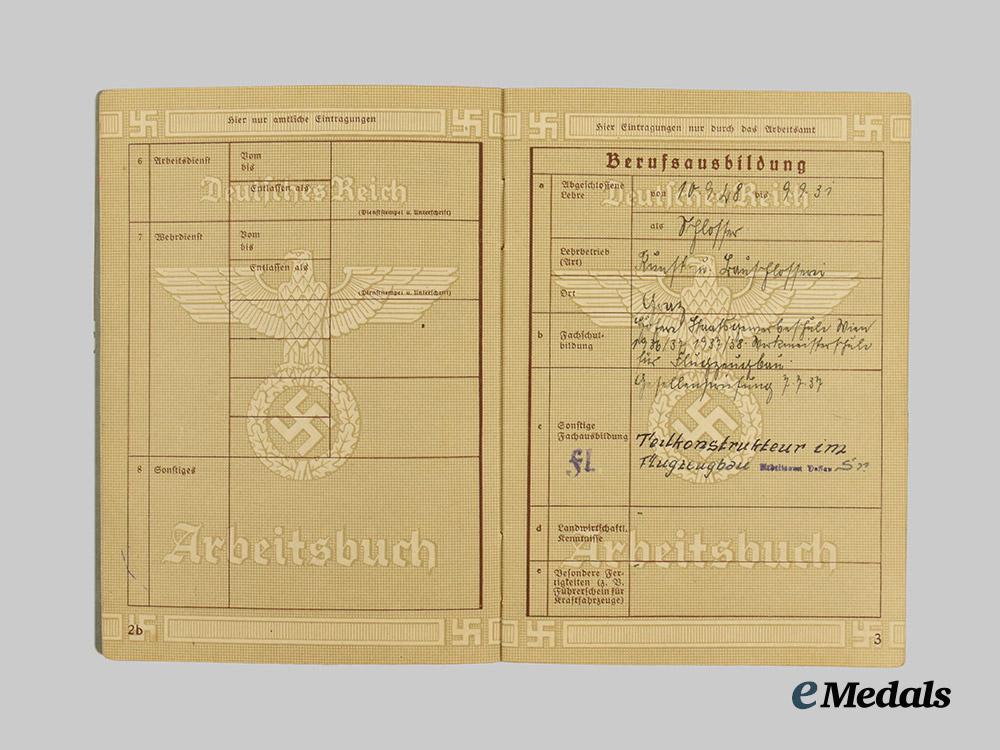 Hier nur amtliche Eintragungen
6 Arbeitsdienst
Vom
bis
Entlassen als
(Dienststempel u. Unterschrift)
Deutsches Reich
7 Wehrdienst
Vom
bis
Entlassen als
(Dienststempel u. Unterschrift)
8 Sonstiges
Arbeitsbuch
2b
Hier Eintragungen nur durch das Arbeitsamt
Berufsausbildung
a Abgeschlossene
Lehre
von 10.9.28 bis 9.9.31
Deutsches Reich
als Schlosser
Lehrbetrieb
(Art)
Kunst- u. Bauschlosserei
Ort
Graz
b Fachschul-
bildung
Höhere Staatsgewerbeschule Wien
1936/37 1937/38 Werkmeisterschule
für Flugzeugbau
Gesellenprüfung 7.7.37
c Sonstige
Fachausbildung
Fl.
Teilkonstrukteur im
Flugzeugbau Arbeitsamt Dessau
d Landwirtschaftl.
Kenntnisse
Arbeitsbuch
e Besondere Fer-
tigkeiten (z. B.
Führerschein für
Kraftfahrzeuge)
3
eMedals